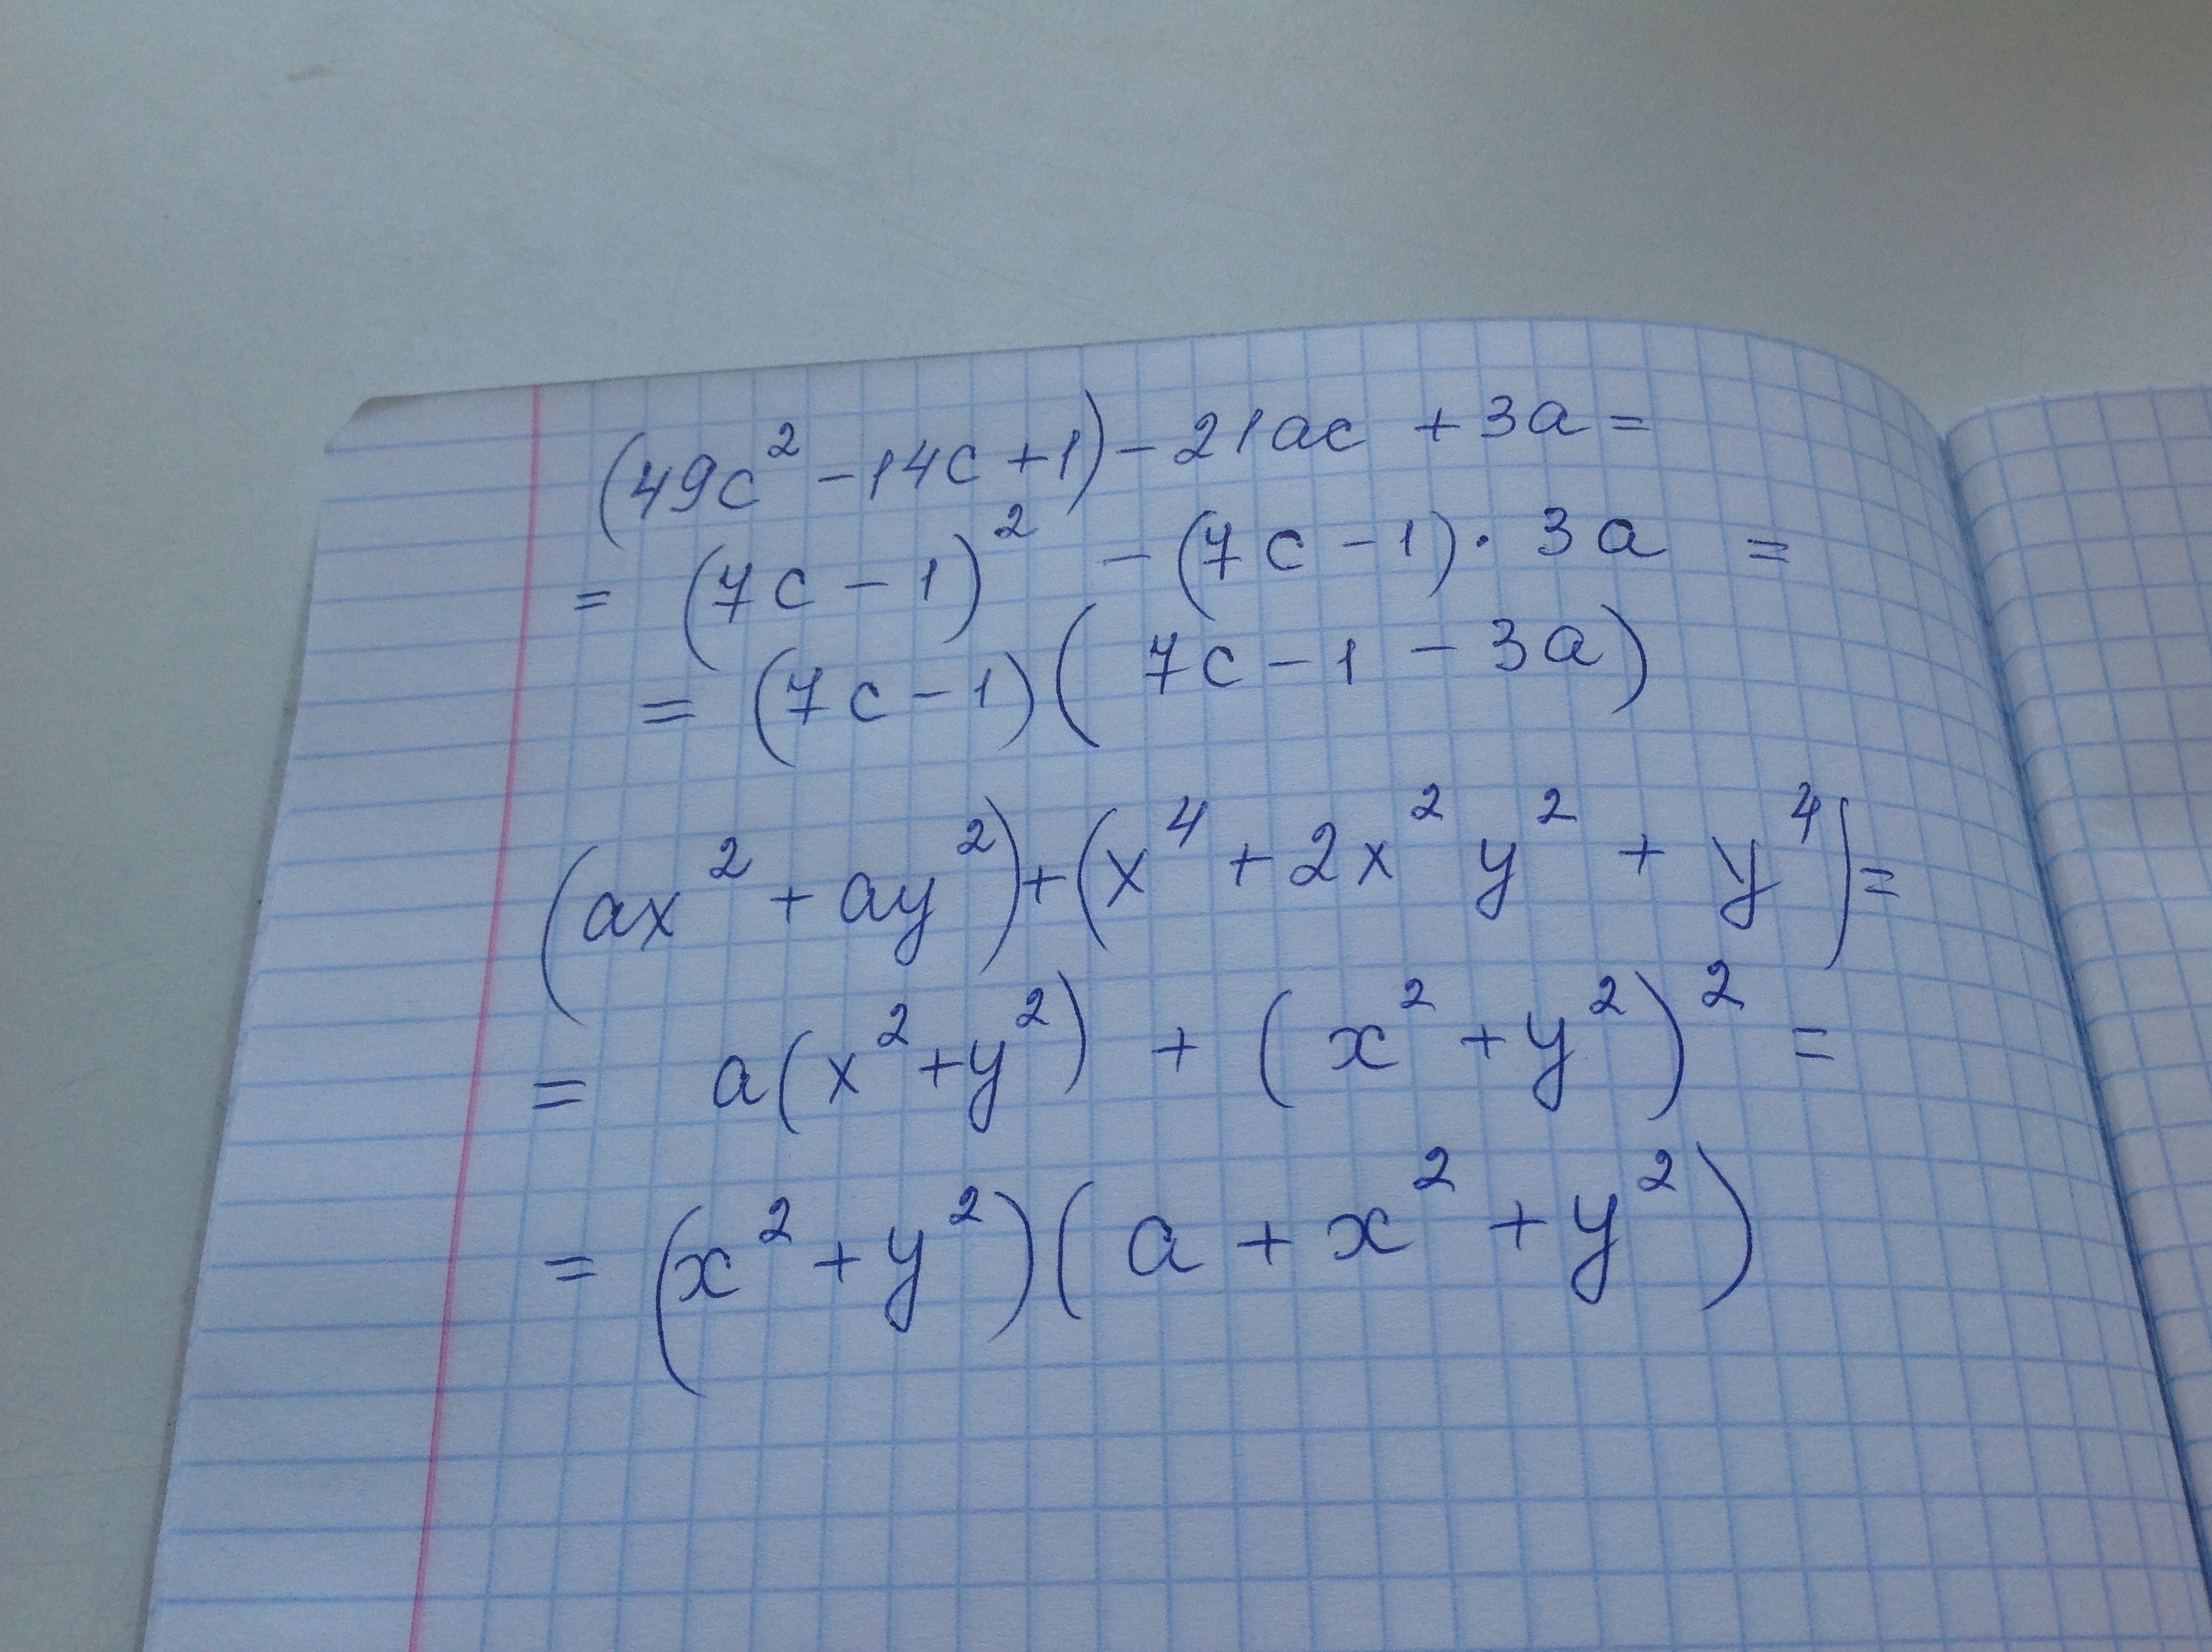 (49c² - 14c + 1) - 21ac + 3a =
= (7c - 1)² - (7c - 1) · 3a =
= (7c - 1)(7c - 1 - 3a)
(ax² + ay²) + (x⁴ + 2x²y² + y⁴) =
= a(x² + y²) + (x² + y²)² =
= (x² + y²)(a + x² + y²)